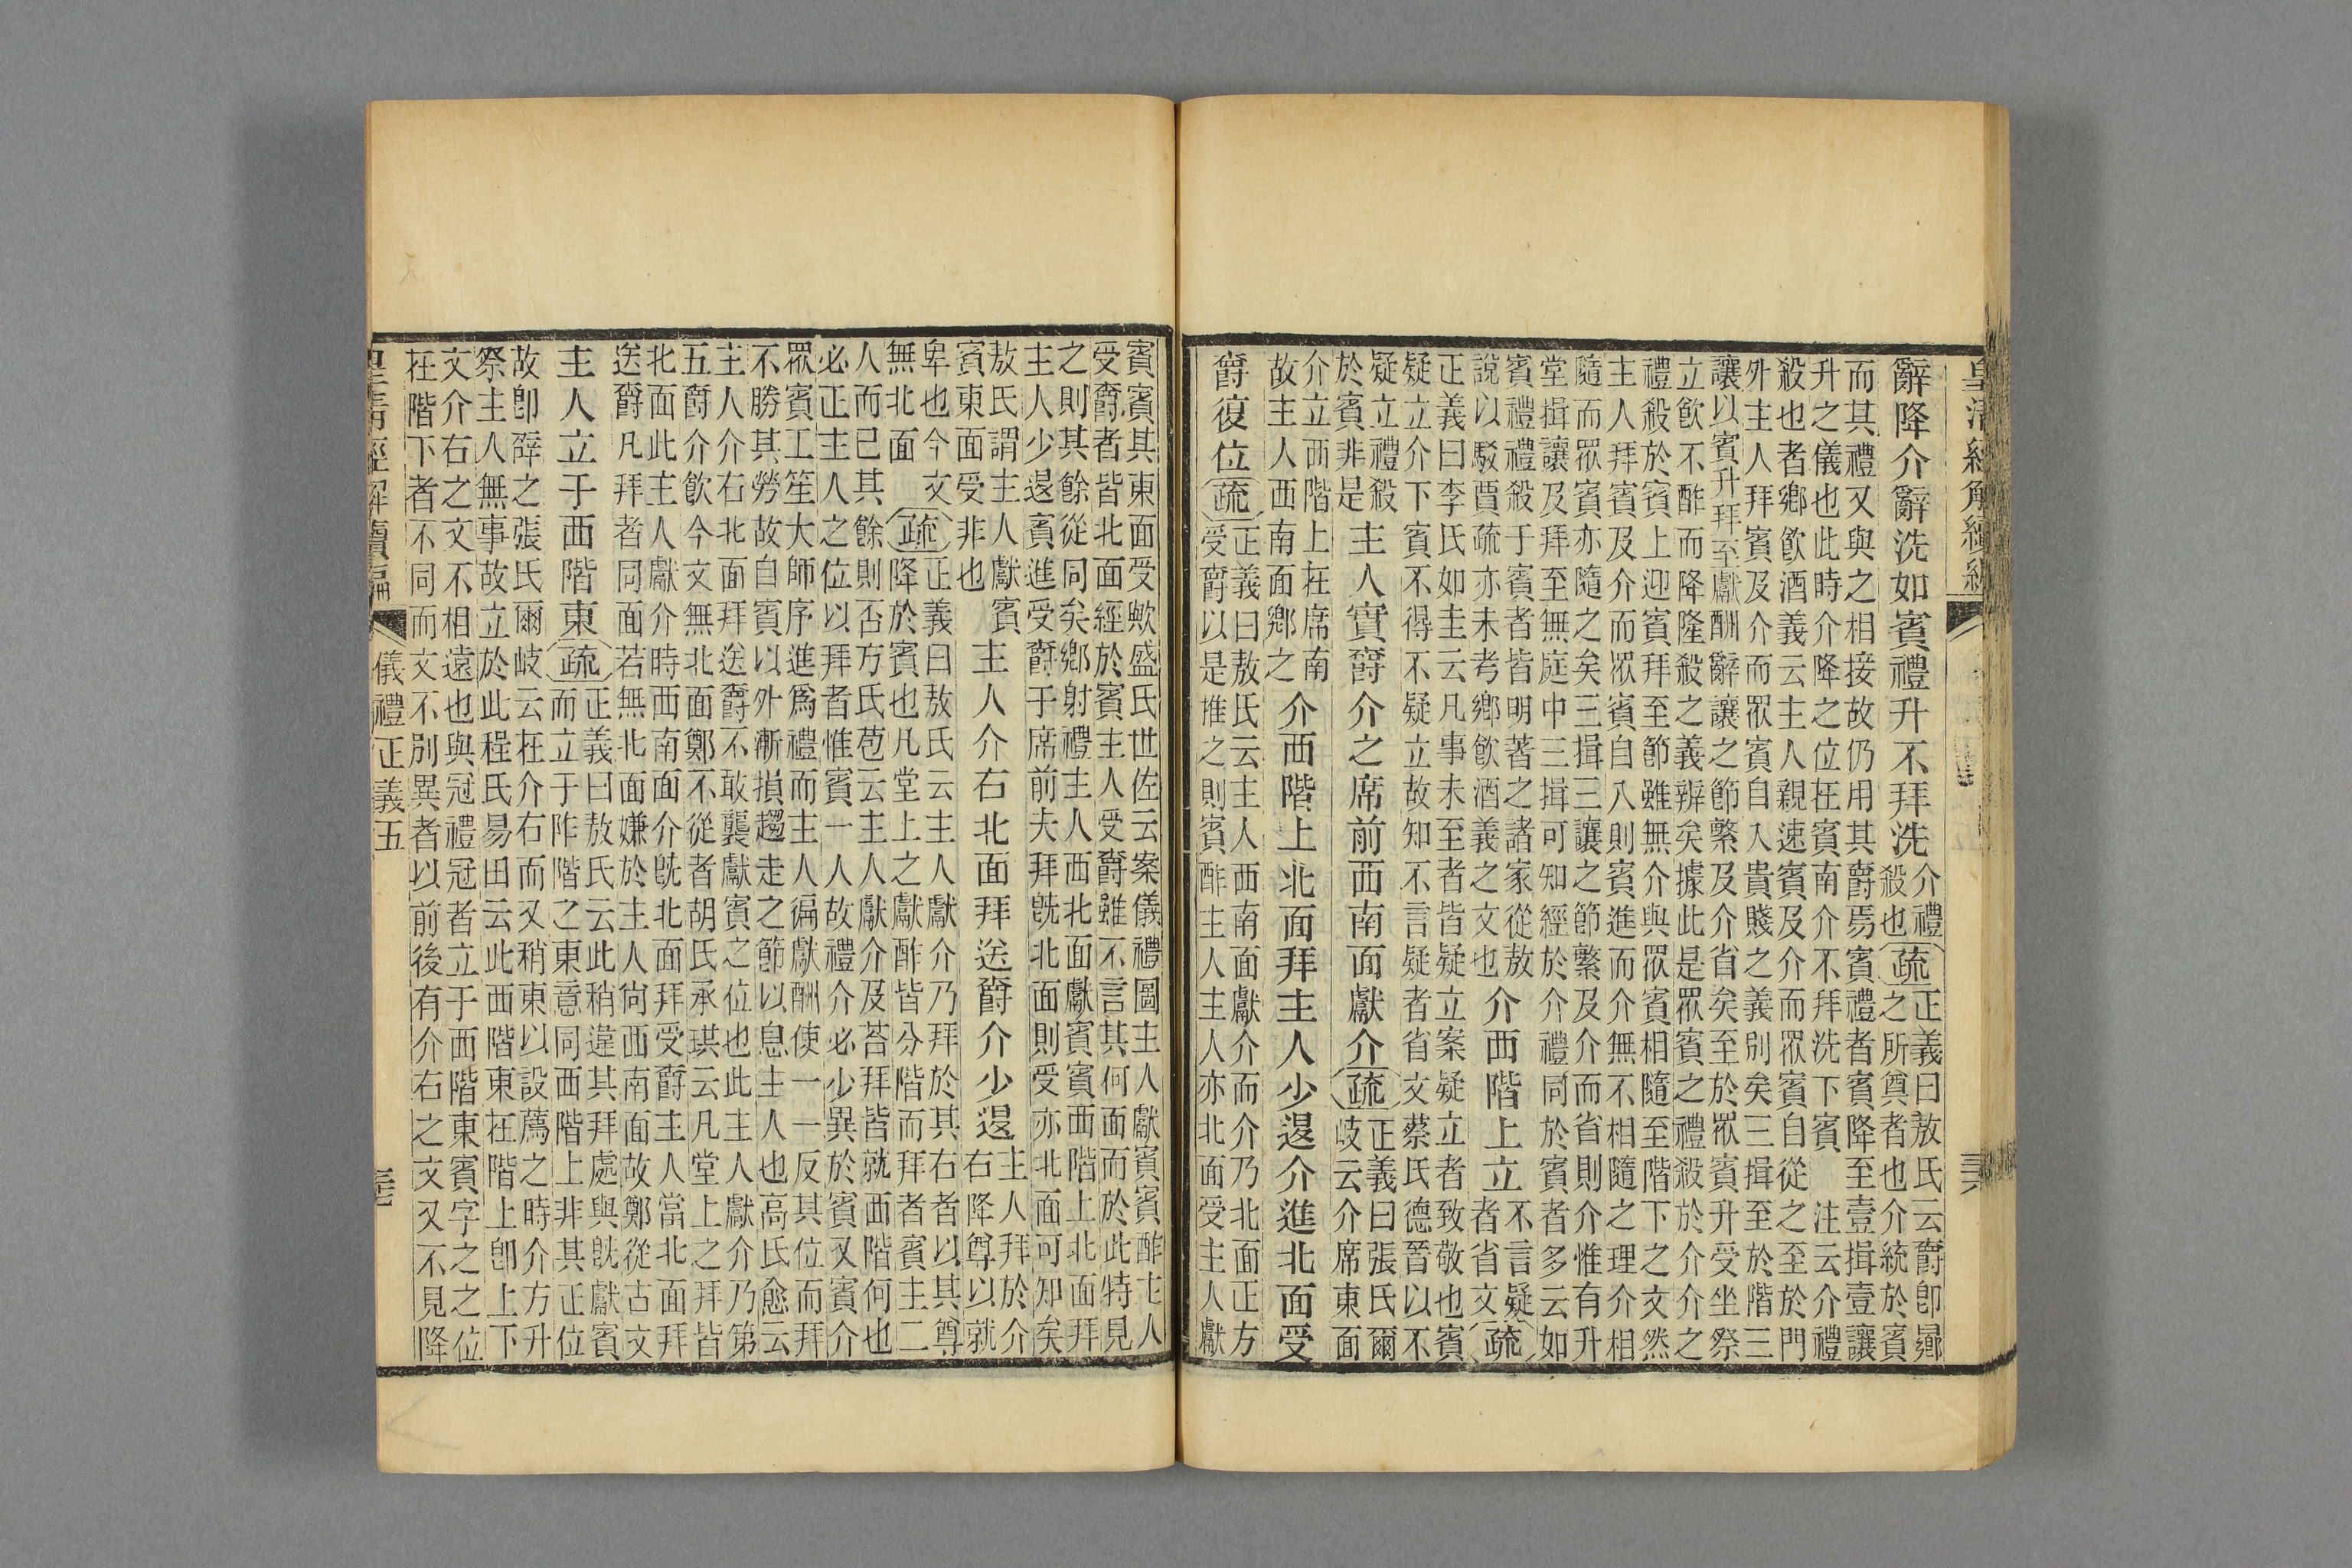 皇清經解續編 三六
辭降介辭洗如賓禮升不拜洗
介禮
殺也
疏
正義曰敖氏云爵卽鄉
之所奠者也介統於賓
而其禮又與之相接故仍用其爵焉賓禮者賓降至壹揖壹讓
升之儀也此時介降之位在賓南介不拜洗下賓 注云介禮
殺也者鄉飮酒義云主人親速賓及介而眾賓自從之至於門
外主人拜賓及介而眾賓自入貴賤之義別矣三揖至於階三
讓以賓升拜至獻酬辭讓之節繁及介省矣至於眾賓升受坐祭
立飮不酢而降隆殺之義辨矣據此是眾賓之禮殺於介介之
禮殺於賓上迎賓拜至節雖無介與眾賓相隨至階下之文然
主人拜賓及介而眾賓自入則賓進而介無不相隨之理介相
隨而眾賓亦隨之矣三揖三讓之節繁及介而省則介惟有升
堂揖讓及拜至無庭中三揖可知經於介禮同於賓者多云如
賓禮禮殺于賓者皆明著之諸家從敖
說以駁賈疏亦未考鄉飮酒義之文也
介西階上立
不言疑
者省文
疏
正義曰李氏如圭云凡事未至者皆疑立案疑立者致敬也賓
疑立介下賓不得不疑立故知不言疑者省文蔡氏德晉以不
疑立禮殺
於賓非是
主人實爵介之席前西南面獻介疏
正義曰張氏爾
岐云介席東面
介立西階上在席南
故主人西南面鄉之
介西階上北面拜主人少退介進北面受
爵復位疏
正義曰敖氏云主人西南面獻介而介乃北面正方
受爵以是推之則賓酢主人主人亦北面受主人獻
賓賓其東面受歟盛氏世佐云案儀禮圖主人獻賓賓酢主人
受爵者皆北面經於賓主人受爵雖不言其何面而於此特見
之則其餘從同矣鄉射禮主人西北面獻賓賓西階上北面拜
主人少退賓進受爵于席前夫拜旣北面則受亦北面可知矣
敖氏謂主人獻賓
賓東面受非也
主人介右北面拜送爵介少退
主人拜於介
右降尊以就
卑也今文
無北面
疏
正義曰敖氏云主人獻介乃拜於其右者以其尊
降於賓也凡堂上之獻酢皆分階而拜者賓主二
人而已其餘則否方氏苞云主人獻介及荅拜皆就西階何也
必正主人之位以拜者惟賓一人故禮介必少異於賓又賓介
眾賓工笙大師序進爲禮而主人徧獻酬使一一反其位而拜
不勝其勞故自賓以外漸損趨走之節以息主人也高氏愈云
主人介右北面拜送爵不敢襲獻賓之位也此主人獻介乃第
五爵介飮今文無北面鄭不從者胡氏承珙云凡堂上之拜皆
北面此主人獻介時西南面介旣北面拜受爵主人當北面拜
送爵凡拜者同面若無北面嫌於主人尙西南面故鄭從古文
主人立于西階東疏
正義曰敖氏云此稍違其拜處與旣獻賓
而立于阼階之東意同西階上非其正位
故卽辭之張氏爾岐云在介右而又稍東以設薦之時介方升
祭主人無事故立於此程氏易田云此西階東在階上卽上下
文介右之文不相遠也與冠禮冠者立于西階東賓字之之位
在階下者不同而文不別異者以前後有介右之文又不見降
皇清經解續編 儀禮正義五